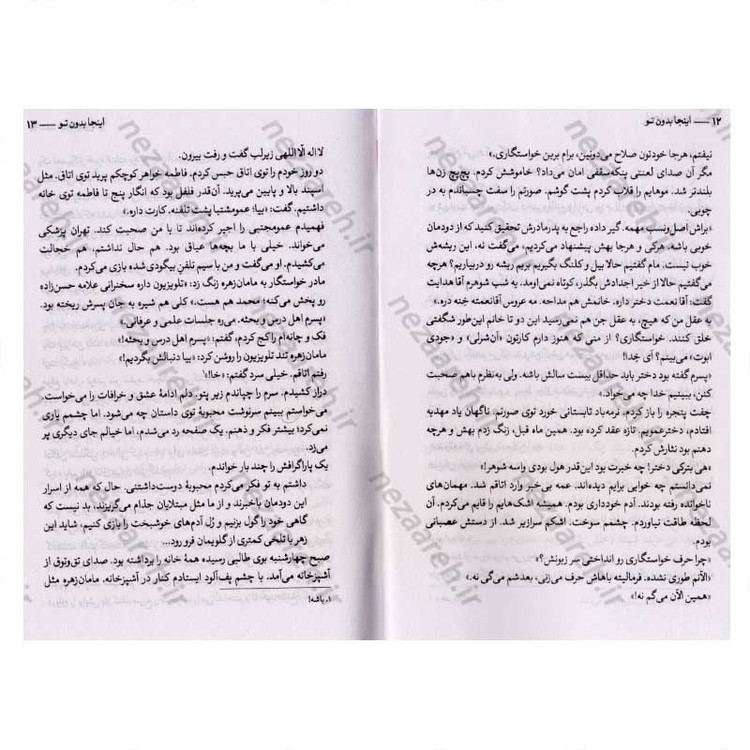 ۱۲ —— اینجا بدون تو
نیفتم، هرجا خودتون صلاح می‌دونین، برام برین خواستگاری.»
مگر آن صدای لعنتی پنکه‌سقفی امان می‌داد؟ خاموشش کردم. پچ‌پچ زن‌ها
بلندتر شد. موهایم را قلاب کردم پشت گوشم. صورتم را سفت چسباندم به در
چوبی.
«براش اصل‌ونسب مهمه. گیر داده راجع به پدرمادرش تحقیق کنید که از دودمان
خوبی باشه. هرکی و هرجا بهش پیشنهاد می‌کردیم، می‌گفت نه، این ریشه‌ش
خوب نیست. مام گفتیم حالا بیل و کلنگ بگیریم بریم ریشه رو دربیاریم؟ هرچه
می‌گفتیم حالا از خیر اجدادش بگذر، کوتاه نمی‌اومد. یه شب شوهرم آقا هدایت
گفت: آقا نعمت دختر داره. خانمش هم مداحه. مه عروس آقانعمته خِنه دره.»
به عقل من که هیچ، به عقل جن هم نمی‌رسید این دو تا خانم این‌طور شگفتی
خلق کنند. خواستگاری؟ از منی که هنوز دارم کارتون «آن‌شرلی» و «جودی
ابوت» می‌بینم؟ ای خدا!
«پسرم گفته بود دختر باید حداقل بیست سالش باشه. ولی به‌نظرم باهم صحبت
کنن، ببینیم خدا چه می‌خواد.»
چفت پنجره را باز کردم. نرمه‌باد تابستانی خورد توی صورتم. ناگهان یاد مهدیه
افتادم، دخترعمویم. تازه عقد کرده بود. همین ماه قبل، زنگ زدم بهش و هرچه
دهنم بود نثارش کردم.
«هی بترکی دختر! چه خبرت بود این‌قدر هول بودی واسه شوهر!»
نمی‌دانستم چه خوابی برایم دیده‌اند. عمه بی‌خبر وارد اتاقم شد. مهمان‌های
ناخوانده رفته بودند. آدم خودداری بودم. همیشه اشک‌هایم را قایم می‌کردم. آن
لحظه طاقت نیاوردم. چشمم سوخت. اشکم سرازیر شد. از دستش عصبانی
بودم.
«چرا حرف خواستگاری رو انداختی سر زبونش؟»
«الآنم طوری نشده. فرمالیته باهاش حرف می‌زنی، بعدشم می‌گی نه.»
«همین الآن می‌گم نه!»
اینجا بدون تو —— ۱۳
لااله الّا اللهی زیرلب گفت و رفت بیرون.
دو روز خودم را توی اتاق حبس کردم. فاطمه خواهر کوچکم پرید توی اتاق. مثل
اسپند بالا و پایین می‌پرید. آن‌قدر فلفل بود که انگار پنج تا فاطمه توی خانه
داشتیم. گفت: «بیا! عمومشتبا پشت تلفنه. کارت داره.»
فهمیدم عمومجتبی را اجیر کرده‌اند تا با من صحبت کند. تهران پزشکی
می‌خواند. خیلی با ما بچه‌ها عیاق بود. هم حال نداشتم، هم خجالت
می‌کشیدم. او می‌گفت و من با سیم تلفنِ بیگودی شده، بازی می‌کردم.
مادر خواستگار به مامان‌زهره زنگ زد: «تلویزیون داره سخنرانی علامه حسن‌زاده
رو پخش می‌کنه؛ محمد هم هست.» کلی هم شیره به جان پسرش ریخته بود.
«پسرم اهل درس و بحثه. می‌ره جلسات علمی و عرفانی.»
فک و چانه‌ام را کج کردم. گفتم: «پسرم اهل درس و بحثه!»
مامان‌زهره تند تلویزیون را روشن کرد: «بیا دنبالش بگردیم!»
رفتم اتاقم. خیلی سرد گفتم: «خا!۱»
دراز کشیدم. سرم را چپاندم زیر پتو. دلم ادامهٔ عشق و خرافات را می‌خواست.
می‌خواستم ببینم سرنوشت محبوبهٔ توی داستان چه می‌شود. اما چشمم یاری
نمی‌کرد؛ بیشتر فکر و ذهنم. یک صفحه رد می‌شدم، اما خیالم جای دیگری پر
می‌زد.
یک پاراگرافش را چند بار خواندم.
داشتم به تو فکر می‌کردم محبوبهٔ دوست‌داشتنی. حال که همه از اسرار
این دودمان باخبرند و از ما مثل مبتلایان جذام می‌گریزند، بد نیست که
گاهی خود را گول بزنیم و رُل آدم‌های خوشبخت را بازی کنیم، شاید این
زهر با تلخی کمتری از گلویمان فرو رود...
صبح چهارشنبه بوی طالبی رسیده، همهٔ خانه را برداشته بود. صدای تق‌وتوق از
آشپزخانه می‌آمد. با چشم پف‌آلود ایستادم کنار در آشپزخانه. مامان‌زهره مثل
۱. باشه!
nezaareh.ir